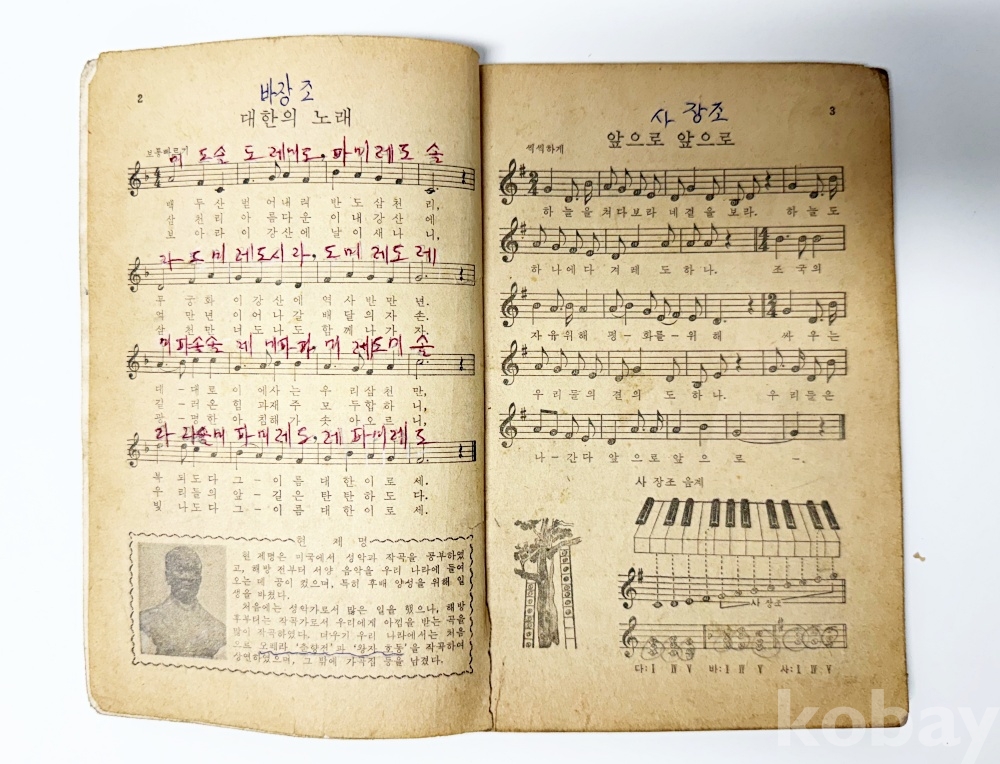 2
바장조
대한의 노래
보통빠르기
미 도솔 도 레미도, 파미레도 솔
백 두산 벋어내려 반 도삼천 리,
삼 천리 아름다운 이내강산 에
보 아라 이강산에 날이새나 니,
라 도 미 레도시라, 도 미 레도레
무 궁화 이강산에 역사반만 년.
억 만년 이어나갈 배달의자 손.
삼 천만 너도나도 함께나가 자.
미파솔솔 레 미파파, 미 레도미 솔
대 - 대로 이 에사는 우 리삼천 만,
길 - 러온 힘 과재주 모 두합하 니,
광 - 명한 아 침해가 솟 아오르 니,
라 라솔미 파미레도, 레 파미레 도
복 되도다 그-이름 대한이로 세.
우 리들의 앞-길은 탄탄하도 다.
빛 나도다 그-이름 대한이로 세.
현 제 명
현 제명은 미국에서 성악과 작곡을 공부하였
고, 해방 전부터 서양 음악을 우리 나라에 들여
오는 데 공이 컸으며, 특히 후배 양성을 위해 일
생을 마쳤다.
처음에는 성악가로서 많은 일을 했으나, 해방
후부터는 작곡가로서 우리에게 아낌을 받는 곡을
많이 작곡하였다. 더우기 우리 나라에서는 처음
으로 오페라 '춘향전'과 '왕자 호동'을 작곡하여
상연하였으며, 그 밖에 가곡집 등을 남겼다.
3
사 장조
앞으로 앞으로
씩씩하게
하늘을 쳐다보라 네곁을 보라. 하늘도
하나에다 겨레 도하 나. 조국의
자유위해 평-화를-위 해 싸우는
우리들의 결의 도하나. 우리들은
나-간다 앞으로앞으 로 -.
사 장조 음계
사 장조
다:Ⅰ Ⅳ Ⅴ 바:Ⅰ Ⅳ Ⅴ 사:Ⅰ Ⅳ Ⅴ
kobay